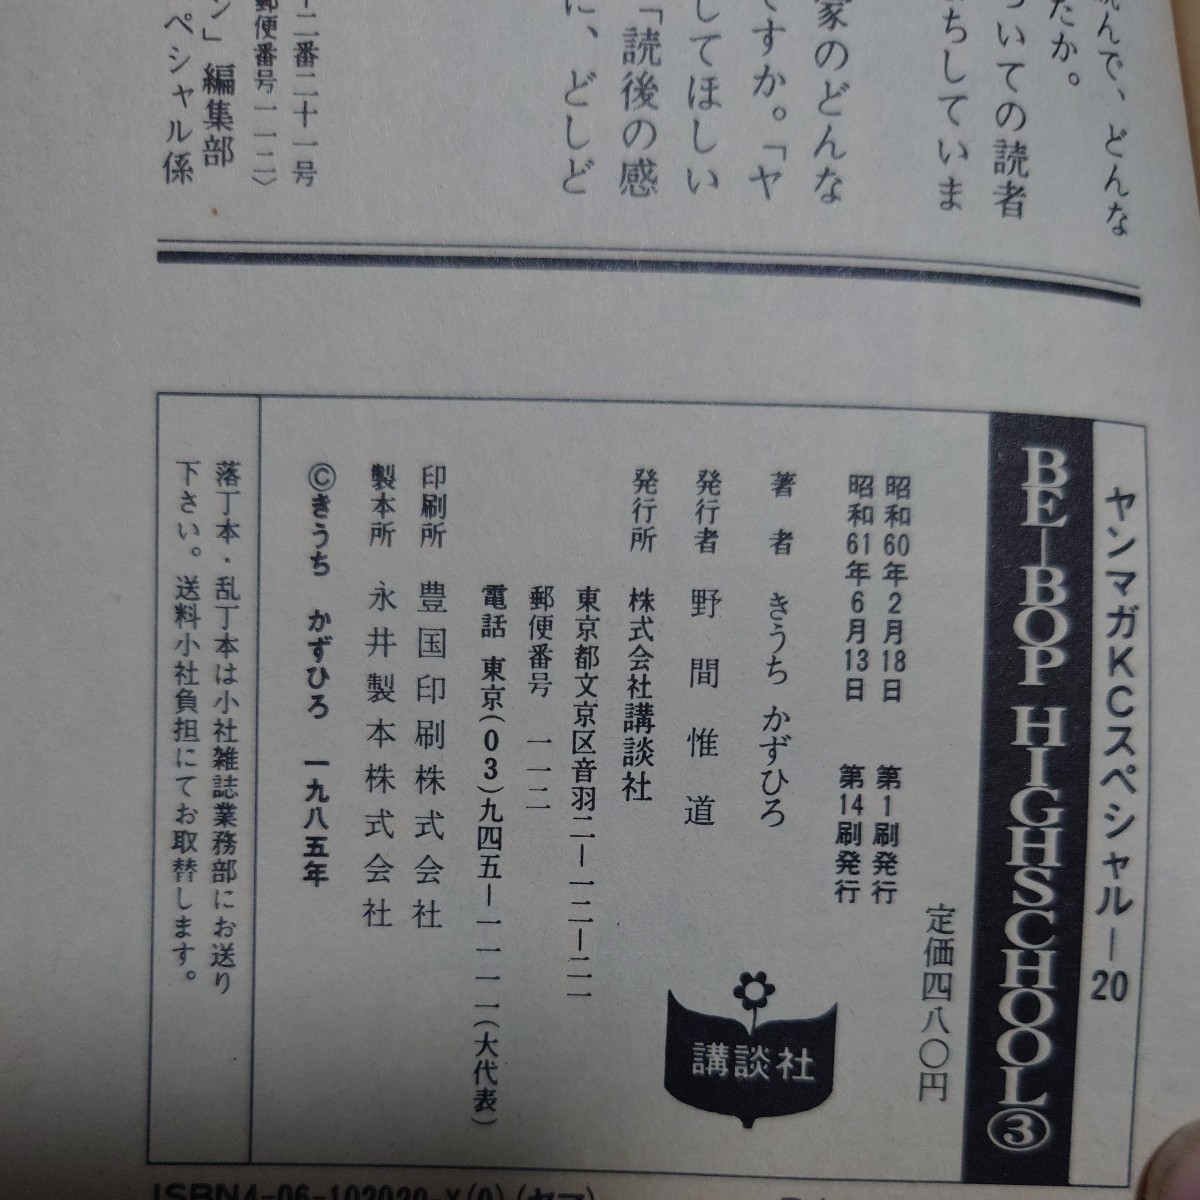 読んで、どんな
たか。
ついての読者
ちしていま
家のどんな
ですか。「ヤ
してほしい
「読後の感
に、どしど
十二番二十一号
郵便番号一一二〉
ン」編集部
ペシャル係
ヤンマガKCスペシャル—20
BE-BOP HIGHSCHOOL③
定価四八〇円
昭和60年2月18日 第1刷発行
昭和61年6月13日 第14刷発行
著者 きうち かずひろ
発行者 野間惟道
発行所 株式会社講談社
東京都文京区音羽二—一二—二一
郵便番号 一一二
電話 東京(03)九四五—一一一一(大代表)
印刷所 豊国印刷株式会社
製本所 永井製本株式会社
©きうち かずひろ 一九八五年
落丁本・乱丁本は小社雑誌業務部にお送り
下さい。送料小社負担にてお取替します。
講談社
ISBN4-06-102020-X(0)(ヤマ)